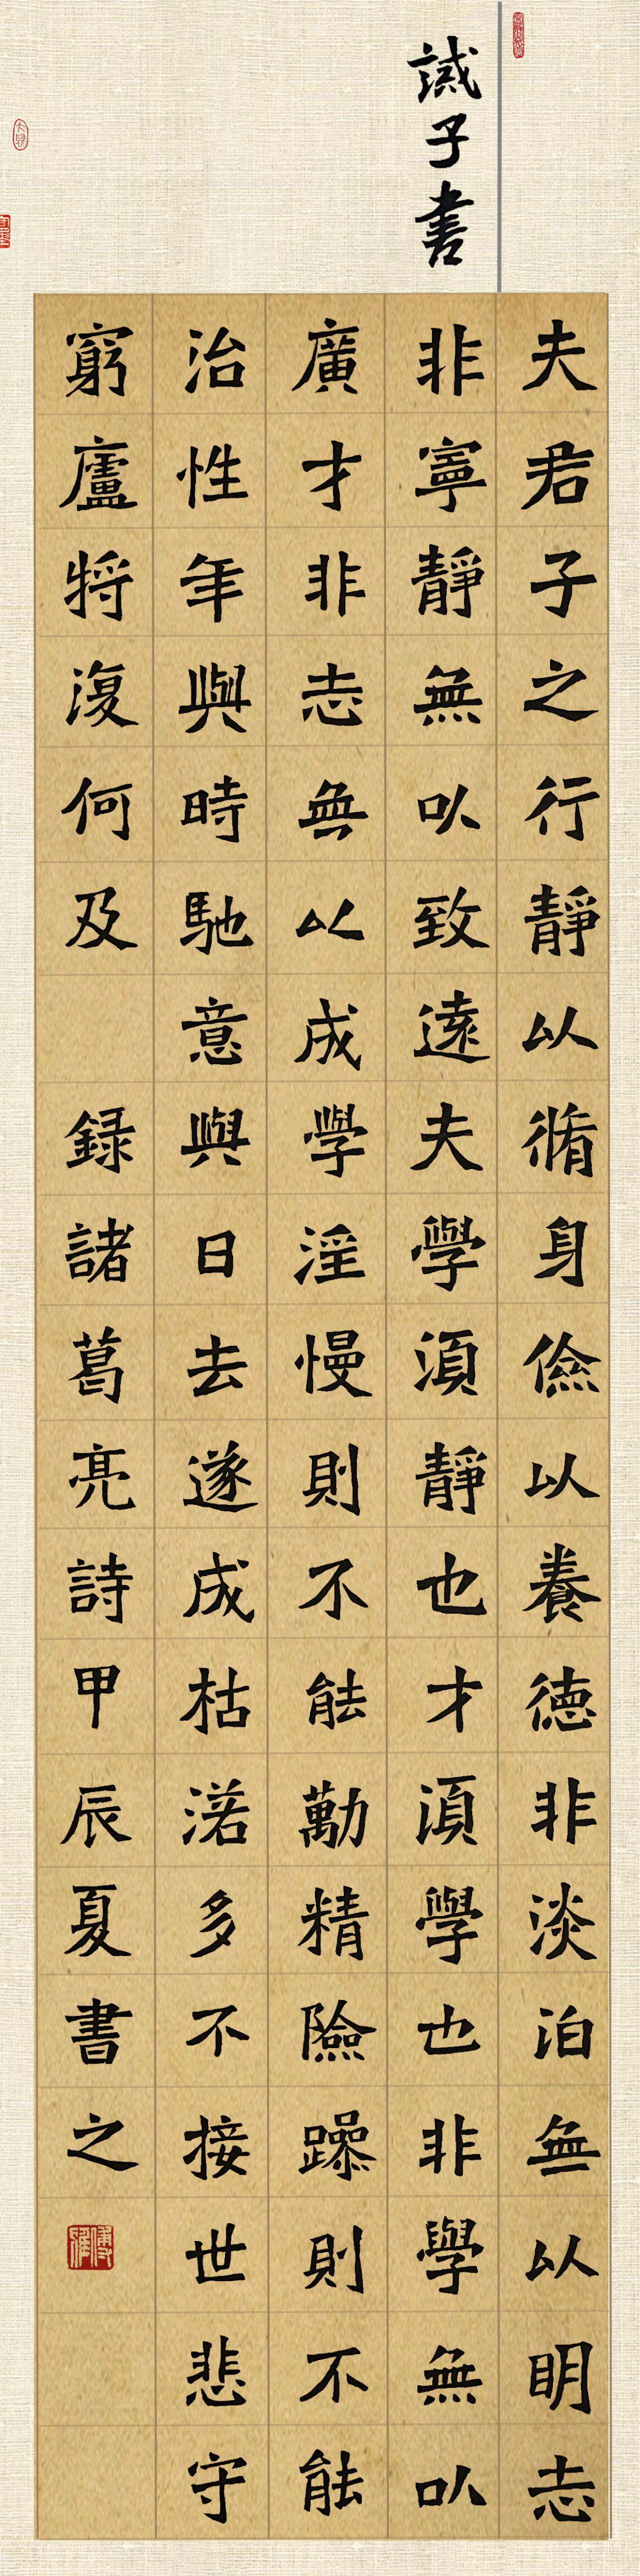 誡子書
夫君子之行靜以脩身儉以養德非淡泊無以明志
非寧靜無以致遠夫學須靜也才須學也非學無以
廣才非志無以成學淫慢則不能勵精險躁則不能
治性年與時馳意與日去遂成枯落多不接世悲守
窮廬將復何及 録諸葛亮詩甲辰夏書之